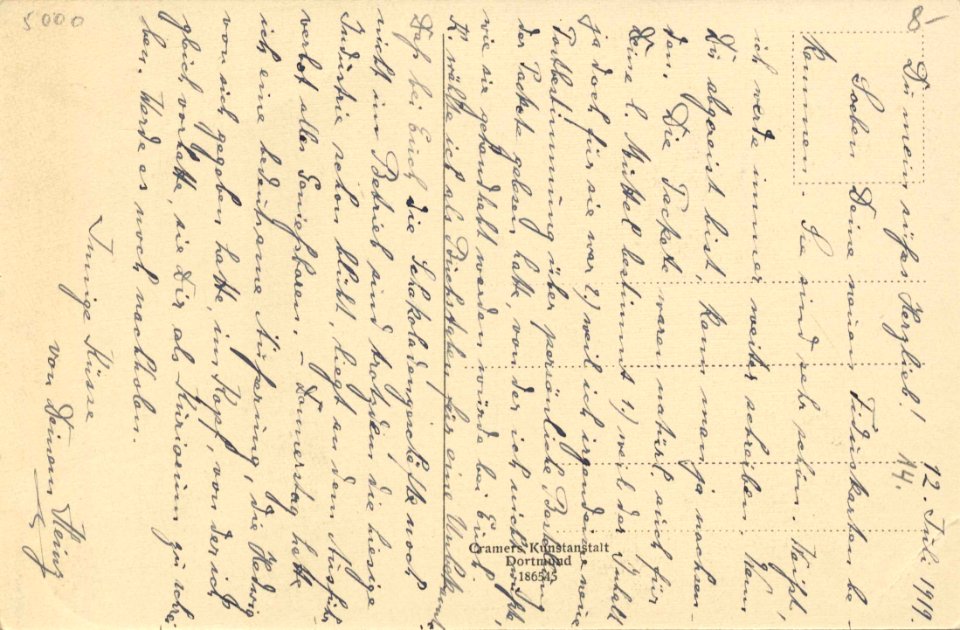 5000
8-
12. Juli 1919.
14.
Du mein süßes Herzlieb!
Soeben Deine neuen be-
kommen. Sie sind sehr schön. Weißt,
ich werde immer weiter schreiben. Wenn
Du abgereist bist, kann man ja nachsen-
den. Die Packete waren natürl. auch für
Deine l. Mutter bestimmt 1.) weil der Inhalt
ja doch für sie war 2.) weil ich irgendeine neue
Postbestimmung über persönliche
der Packete gelesen hatte, von der ich nicht wußte
wie sie gehandhabt werden würde bei Euch.
wählte ich als Buchstaben für eine
Daß bei Euch die Schokoladengeschäfte noch
nicht im Betrieb sind trotzdem die hiesige
Industrie schon blüht, liegt an dem Ausfuhr-
verbot alles Genießbaren. – Donnerstag hatte
ich eine bedeutsame Äußerung, die Hedwig
von sich gegeben hatte, im Kopf, von der ich
gleich vorhatte, sie Dir als Kuriosum zu schrei-
ben. Werde es noch nachholen.
Innige Küsse
von Deinem Heinz
Cramers Kunstanstalt
Dortmund
186545